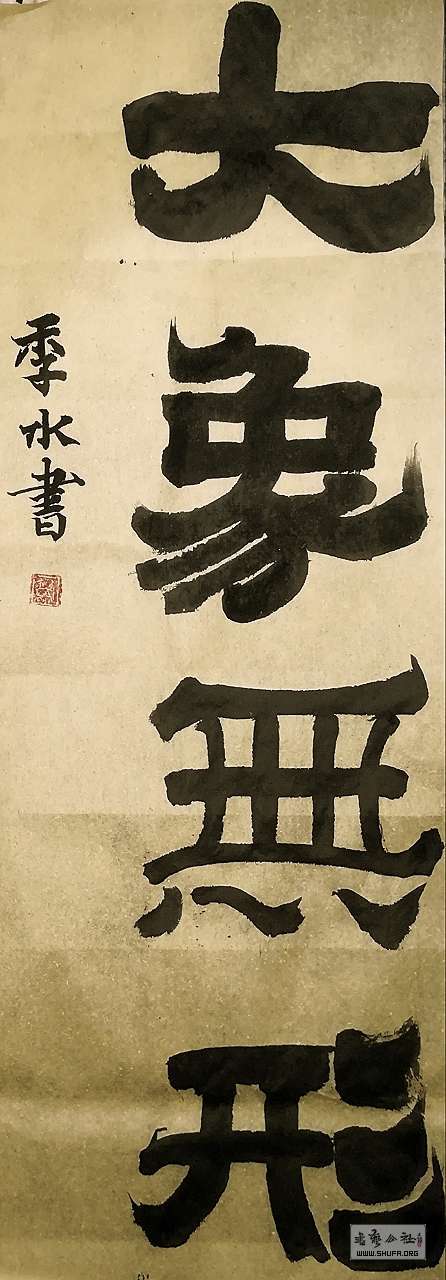 大象無形
季水書
WWW.SHUFA.ORG